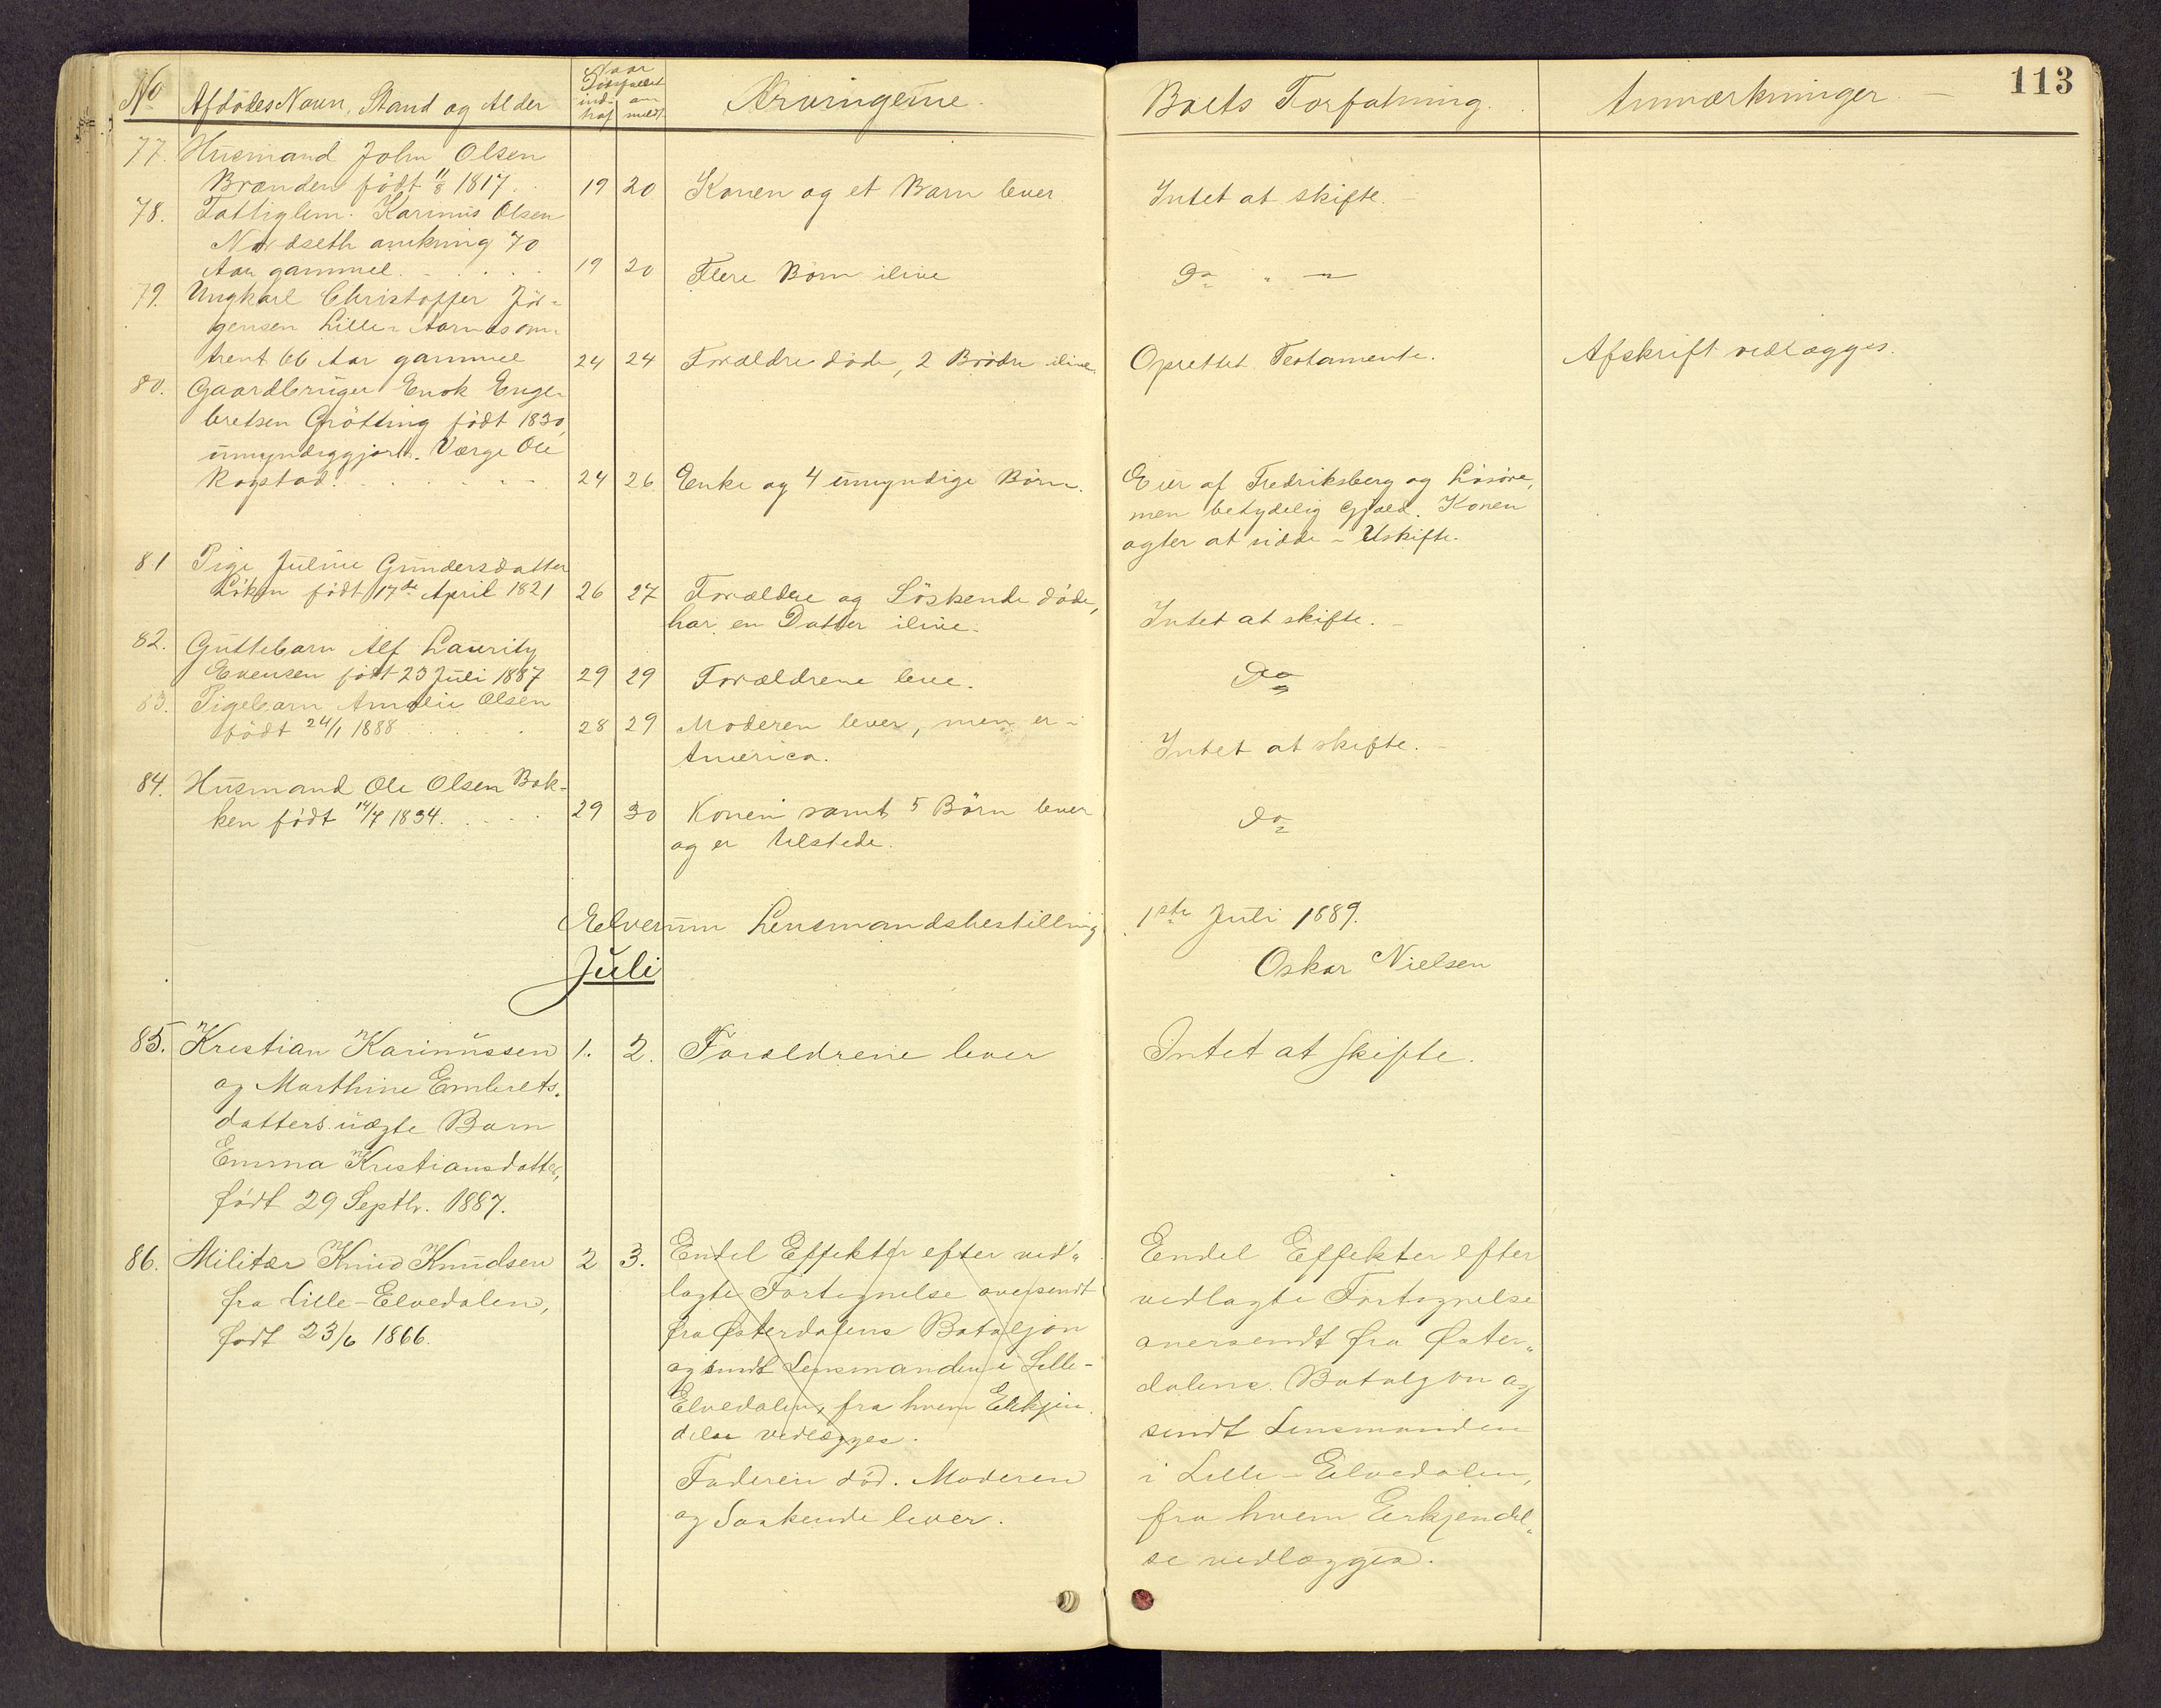 113
No Afdödes Navn, Stand og Alder Naar Dödsfaldet indtraf anmeldt Arvingerne. Boets Forfatning. Anmærkninger
77. Husmand John Olsen
Branden födt 11/8 1817 19 20 Konen og et Barn lever Intet at skifte.
78. Fattiglem. Karinus Olsen
Nordseth omkring 70
Aar gammel. 19 20 Flere Börn ilive Do
79. Ungkarl Christoffer Jör-
gensen Lille-Aarnæs om-
trent 66 Aar gammel 24 24 Forældre döde, 2 Brödre ilive Oprettet Testamente. Afskrift vedlægges.
80. Gaardbruger Enok Enge-
bretsen Grötting födt 1830,
umyndiggjort. Værge Ole
Rogstad. 24 26 Enke og 4 umyndige Börn. Eier af Fredriksberg og Lösöre,
men betydelig Gjæld. Konen
agter at sidde i Uskifte.
81 Pige Juline Gundersdatter
Löken födt 17de April 1821 26 27 Forældre og Söskende döde,
har en Datter ilive. Intet at skifte.
82. Guttebarn Alf Lauritz
Evensen födt 23 Juli 1887 29 29 Forældrene leve. Do
83. Pigebarn Amalie Olsen
födt 24/1 1888 28 29 Moderen lever, men er i
America. Intet at skifte.
84. Husmand Ole Olsen Bak-
ken födt 14/7 1834. 29 30 Konen samt 5 Börn lever
og er tilstede. Do
Elverum Lensmandsbestilling 1ste Juli 1889.
Oskar Nielsen
Juli
85. Kristian Karinussen 1. 2. Forældrene lever Intet at skifte.
og Marthine Embrets.
datters uægte Barn
Emma Kristiansdatter,
födt 29 Septbr. 1887.
86. Militær Knud Knudsen 2 3.
fra Lille-Elvedalen,
født 23/6 1866.
Endel Effekter efter ved„
lagte Fortegnelse oversendt
fra Østerdalens Bataljon
og sendt Lensmanden i Lille-
Elvedalen, fra hvem Erkjen.
delse vedlægges.
Faderen död. Moderen
og Søskende lever.
Endel Effekter efter
vedlagte Fortegnelse
oversendt fra Øster„
dalens Bataljon og
sendt Lensmanden
i Lille-Elvedalen,
fra hvem Erkjendel„
se vedlægges.